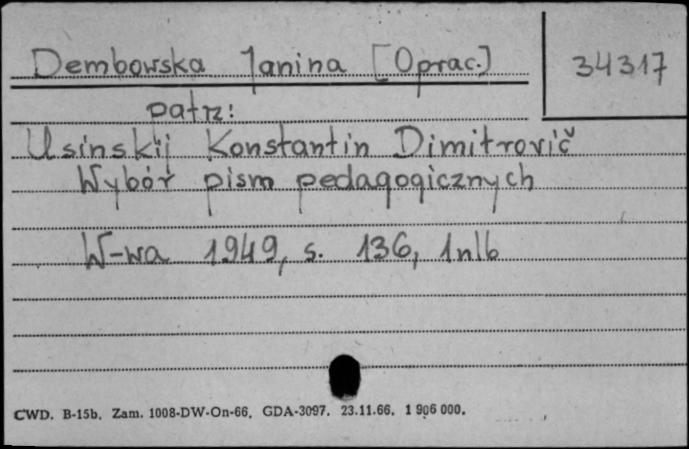 Dembowska Janina [Oprac.]
34317
patrz:
Usinskij Konstantin Dimitrovič
Wybór pism pedagogicznych
W-wa 1949, s. 136, 1nlb
CWD. B-15b. Zam. 1008-DW-On-66. GDA-3097. 23.11.66. 1 906 000.